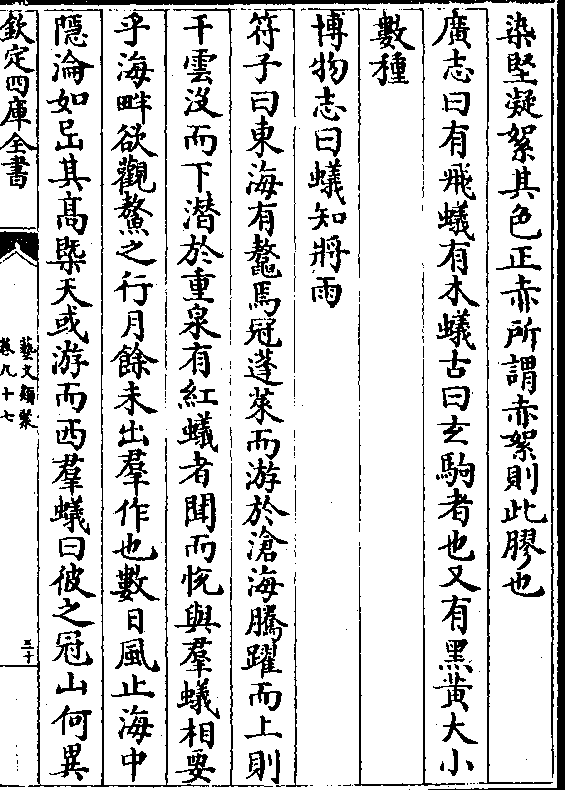 染堅凝絮其色正赤所謂赤絮則此膠也
廣志曰有飛蟻有木蟻古曰玄駒者也又有黑黄大小
數種
博物志曰蟻知將雨
符子曰東海有鼇焉冠蓬萊而游於滄海騰躍而上則
干雲沒而下潛於重泉有紅蟻者聞而恱與羣蟻相要
乎海畔欲觀鼇之行月餘未出羣作也數日風止海中
隱淪如岊其髙槩天或游而西羣蟻曰彼之冠山何異
欽定四庫全書
藝文類聚
卷九十七
三十